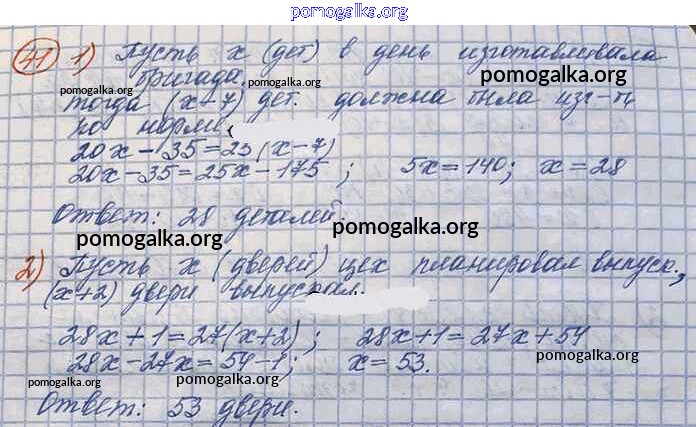 pomogalka.org
41 1) Пусть x (дет) в день изготавливала
бригада,
pomogalka.org
pomogalka.org
тогда (x+7) дет. должна была изг-ть
по норме,
pomogalka.org
20x - 35 = 25 (x - 7)
20x - 35 = 25x - 175 ; 5x = 140; x = 28
Ответ: 28 деталей.
pomogalka.org
pomogalka.org
2) Пусть x (дверей) цех планировал выпуск.,
(x+2) двери выпускал.
28x + 1 = 27(x+2) ; 28x + 1 = 27x + 54
28x - 27x = 54 - 1 ; x = 53.
pomogalka.org
pomogalka.org
pomogalka.org
Ответ: 53 двери.